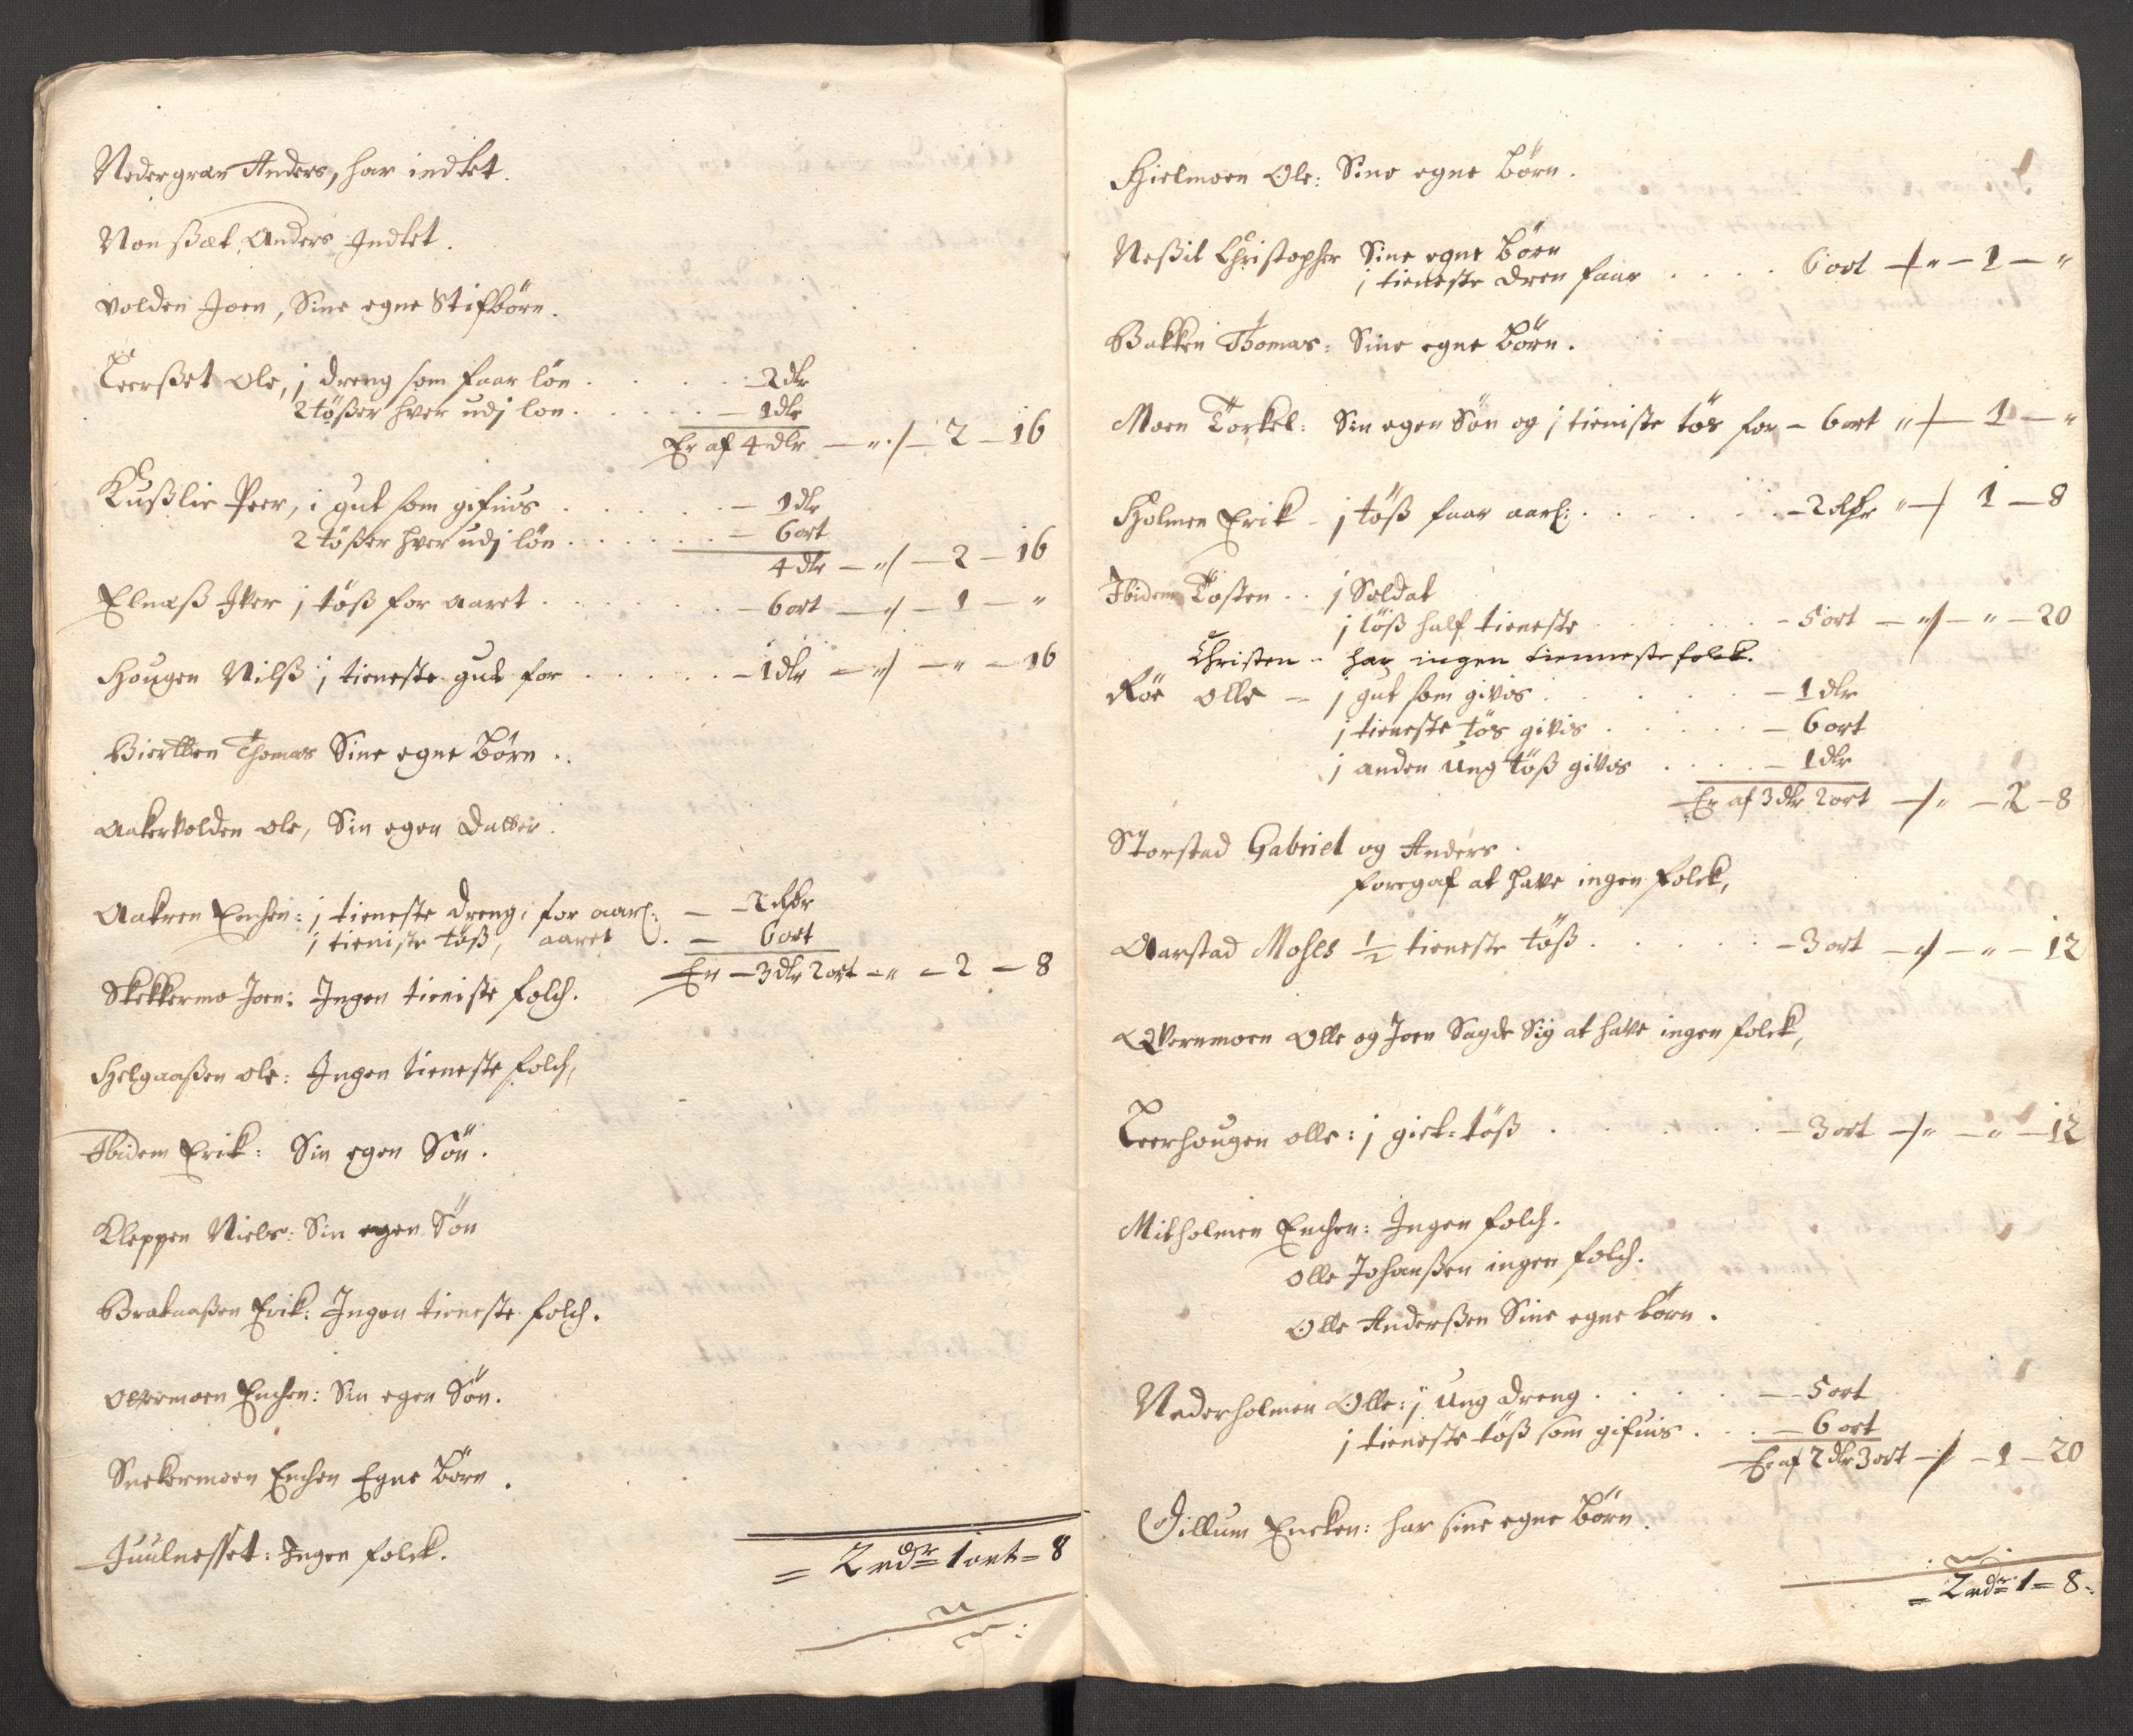 Nedergran Anders, har indtet.
Nonsßæt, Anders Indtet.
volden Joen, Sine egne Stifbörn.
Leerßet Ole, j dreng som faar lön . . . . . 2 dlr
2 tößer hver udj lon . . . . . – 1 dlr
Er af 4 dlr – " ./. – 2 – 16
Kußlie Peer, i gut som gifuis . . . . . – 1 dlr
2 tößer hver udj lön . . . . . – 6 ort
4 dlr – " / – 2 – 16
Elnæß Iver j töß for aaret . . . . . – 6 ort – " / – 1 – "
Hougen Nilß j tieneste gut for . . . . . – 1 dlr – " / – " – 16
Biertken Thomas Sine egne Börn .
Aakervolden Ole, Sin egen Datter.
Aakren Enchen: j tieneste dreng, for aarl: – 2 dlr
j tieniste töß, aaret . – 6 ort
Er – 3 dlr 2 ort – " – 2 – 8
Skekkermo Joen: Ingen tieniste folch.
Helgaaßen Ole: Ingen tieneste folch,
Ibidem Erik: Sin egen Sön.
Kleppen Niels: Sin egen Sön
Brataaßen Erik: Ingen tieneste folch.
Ofvermoen Enchen: Sin egen Sön.
Snekermoen Enchen Egne Börn .
Juulnesset: Ingen folck.
= 2 rdr 1 ort = 8
Hielmoen Ole: Sine egne Börn.
Neßit Christopher Sine egne Börn
j tieneste dren faar . . . . 6 ort –/ " – 1 – "
Bakken Thomas: Sine egne Börn.
Moen Torkel: Sin egen Sön og j tieniste tös for – 6 ort " / – 1 – "
Holmen Erik – j töß faar aarl: . . . . . – 2 dlr " –/ 1 – 8
Ibidem Tosten . . j Soldat
j töß half tieneste . . . . . – 5 ort – " / – " – 20
Christen – har ingen tiennestefolck.
Röe Olle – j gut som givis . . . . . – 1 dlr
j tieneste tös givis . . . . . – 6 ort
j anden ung töß givis . . . . – 1 dlr
Er af 3 dlr 2 ort –/ " – 2 – 8
Storstad Gabriel og Anders .
foregaf at have ingen folck,
Aarstad Moses ½ tieneste töß . . . . . – 3 ort – / – " – 12
Qvernmoen Olle og Joen Sagde Sig at have ingen folck,
Leerhougen Olle: j giet: töß . . . . . – 3 ort –/ " – " – 12
Mitholmen Enchen: Ingen folch.
Olle Johanßen ingen folch.
Olle Anderßen Sine egne börn .
Nederholmen Olle: j ung dreng . . . . . – 5 ort
j tieneste töß som gifuis . . . – 6 ort
Er af 2 dlr 3 ort –/ – 1 – 20
Gillum Encken: har sine egne Börn.
= 2 rdr 1 = 8